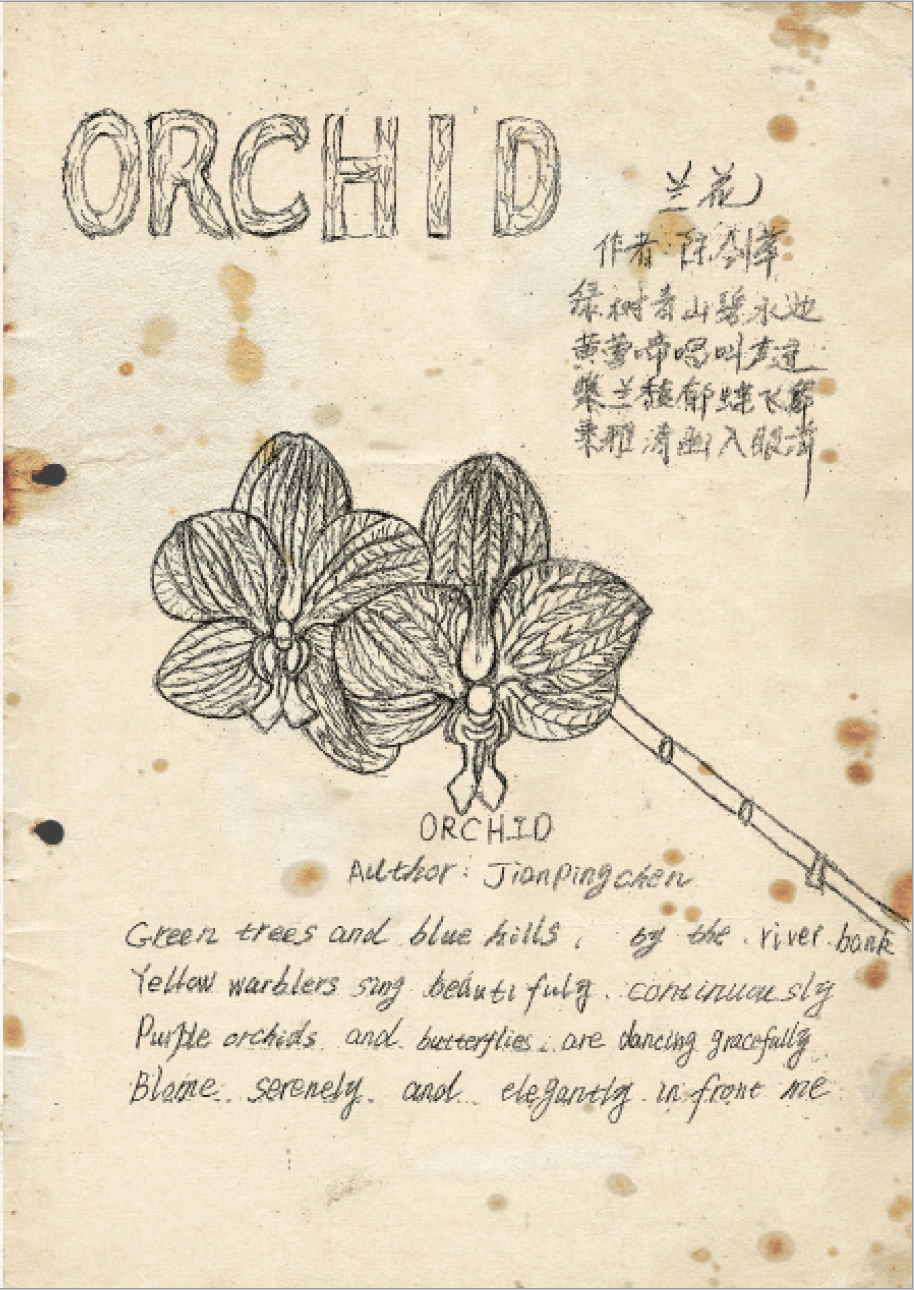 ORCHID
兰花
作者 陈剑萍
绿树青山碧水边
黄莺啼唱叫声连
紫兰馥郁蝶飞翩
素雅清幽入眼帘
ORCHID
Author: Jianpingchen
Green trees and blue hills, by the river bank
Yellow warblers sing beautifuly continuously
Purple orchids and butterflies are dancing gracefully
Blome serenely and elegantly in front me